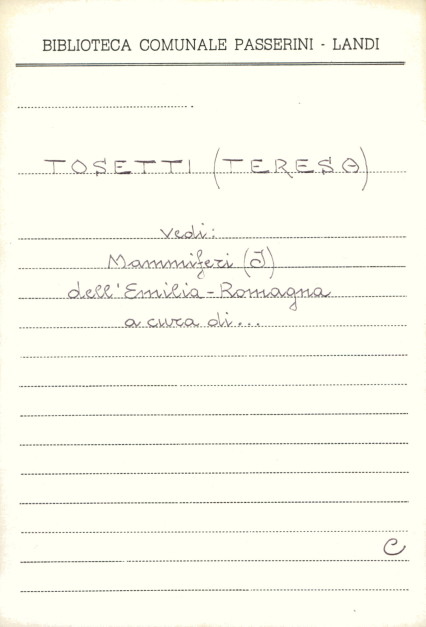 BIBLIOTECA COMUNALE PASSERINI - LANDI
TOSETTI (TERESA)
Vedi:
Mammiferi (I)
dell'Emilia-Romagna
a cura di...
C